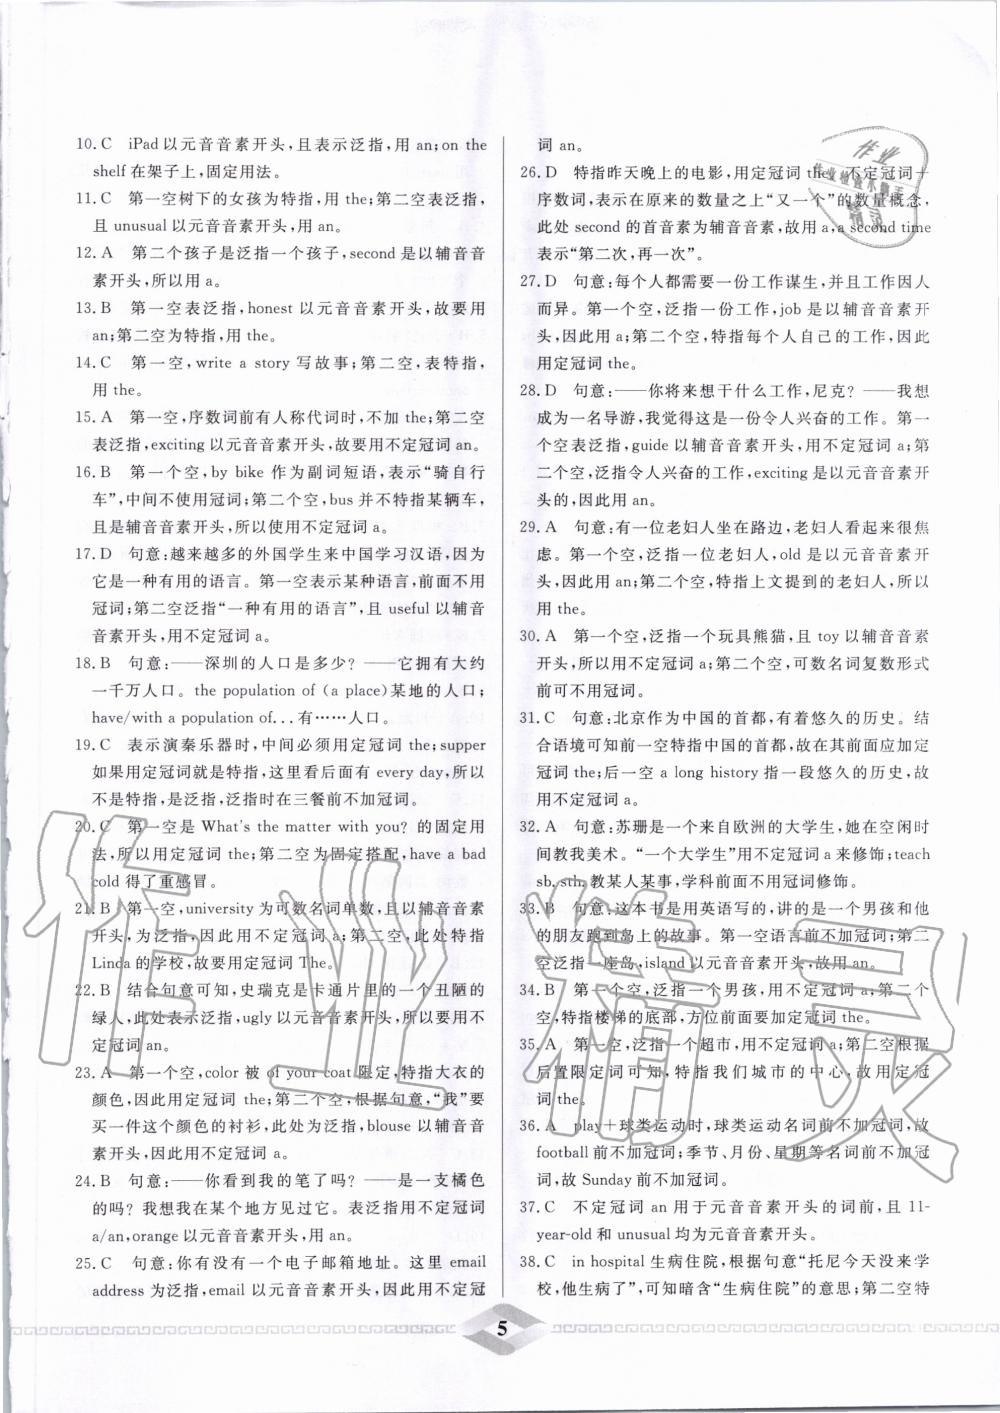 10. C　iPad 以元音音素开头,且表示泛指,用 an;on the
shelf 在架子上,固定用法。
11. C　第一空树下的女孩为特指,用 the;第二空表泛指,
且 unusual 以元音音素开头,用 an。
12. A　第二个孩子是泛指一个孩子,second 是以辅音音
素开头,所以用 a。
13. B　第一空表泛指,honest 以元音音素开头,故要用
an;第二空为特指,用 the。
14. C　第一空,write a story 写故事;第二空,表特指,
用 the。
15. A　第一空,序数词前有人称代词时,不加 the;第二空
表泛指,exciting 以元音音素开头,故要用不定冠词 an。
16. B　第一个空,by bike 作为副词短语,表示“骑自行
车”,中间不使用冠词;第二个空,bus 并不特指某辆车,
且是辅音音素开头,所以使用不定冠词 a。
17. D　句意:越来越多的外国学生来中国学习汉语,因为
它是一种有用的语言。第一空表示某种语言,前面不用
冠词;第二空泛指“一种有用的语言”,且 useful 以辅音
音素开头,用不定冠词 a。
18. B　句意:——深圳的人口是多少? ——它拥有大约
一千万人口。the population of (a place)某地的人口;
have/with a population of...有……人口。
19. C　表示演奏乐器时,中间必须用定冠词 the;supper
如果用定冠词就是特指,这里看后面有 every day,所以
不是特指,是泛指,泛指时在三餐前不加冠词。
20. C　第一空是 What's the matter with you? 的固定用
法,所以用定冠词 the;第二空为固定搭配,have a bad
cold 得了重感冒。
21. B　第一空,university 为可数名词单数,且以辅音音素
开头,为泛指,因此用不定冠词 a;第二空,此处特指
Linda 的学校,故要用定冠词 The。
22. B　结合句意可知,史瑞克是卡通片里的一个丑陋的
绿人,此处表示泛指,ugly 以元音音素开头,所以要用不
定冠词 an。
23. A　第一个空,color 被 of your coat 限定,特指大衣的
颜色,因此用定冠词 the;第二个空,根据句意,“我”要
买一件这个颜色的衬衫,此处为泛指,blouse 以辅音音
素开头,因此用不定冠词 a。
24. B　句意:——你看到我的笔了吗? ——是一支橘色
的吗? 我想我在某个地方见过它。表泛指用不定冠词
a/an,orange 以元音音素开头,用 an。
25. C　句意:你有没有一个电子邮箱地址。这里 email
address 为泛指,email 以元音音素开头,因此用不定冠
词 an。
26. D　特指昨天晚上的电影,用定冠词 the。不定冠词+
序数词,表示在原来的数量之上“又一个”的数量概念,
此处 second 的首音素为辅音音素,故用 a,a second time
表示“第二次,再一次”。
27. D　句意:每个人都需要一份工作谋生,并且工作因人
而异。第一个空,泛指一份工作,job 是以辅音音素开
头,因此用 a;第二个空,特指每个人自己的工作,因此
用定冠词 the。
28. D　句意:——你将来想干什么工作,尼克? ——我想
成为一名导游,我觉得这是一份令人兴奋的工作。第一
个空表泛指,guide 以辅音音素开头,用不定冠词 a;第
二个空,泛指令人兴奋的工作,exciting 是以元音音素开
头的,因此用 an。
29. A　句意:有一位老妇人坐在路边,老妇人看起来很焦
虑。第一个空,泛指一位老妇人,old 是以元音音素开
头,因此用 an;第二个空,特指上文提到的老妇人,所以
用 the。
30. A　第一个空,泛指一个玩具熊猫,且 toy 以辅音音素
开头,所以用不定冠词 a;第二个空,可数名词复数形式
前可不用冠词。
31. C　句意:北京作为中国的首都,有着悠久的历史。结
合语境可知前一空特指中国的首都,故在其前面应加定
冠词 the;后一空 a long history 指一段悠久的历史,故
用不定冠词 a。
32. A　句意:苏珊是一个来自欧洲的大学生,她在空闲时
间教我美术。“一个大学生”用不定冠词 a 来修饰;teach
sb. sth. 教某人某事,学科前面不用冠词修饰。
33. B　句意:这本书是用英语写的,讲的是一个男孩和他
的朋友跑到岛上的故事。第一空语言前不加冠词;第二
空泛指一座岛,island 以元音音素开头,故用 an。
34. B　第一个空,泛指一个男孩,用不定冠词 a;第二个
空,特指楼梯的底部,方位前面要加定冠词 the。
35. A　第一空,泛指一个超市,用不定冠词 a;第二空根据
后置限定词可知,特指我们城市的中心,故用定冠
词 the。
36. A　play+球类运动时,球类运动名词前不加冠词,故
football 前不加冠词;季节、月份、星期等名词前不加冠
词,故 Sunday 前不加冠词。
37. C　不定冠词 an 用于元音音素开头的词前,且 11-
year-old 和 unusual 均为元音音素开头。
38. C　in hospital 生病住院,根据句意“托尼今天没来学
校,他生病了”,可知暗含“生病住院”的意思;第二空特
5
作业
作业检查小帮手
精灵
作业精灵